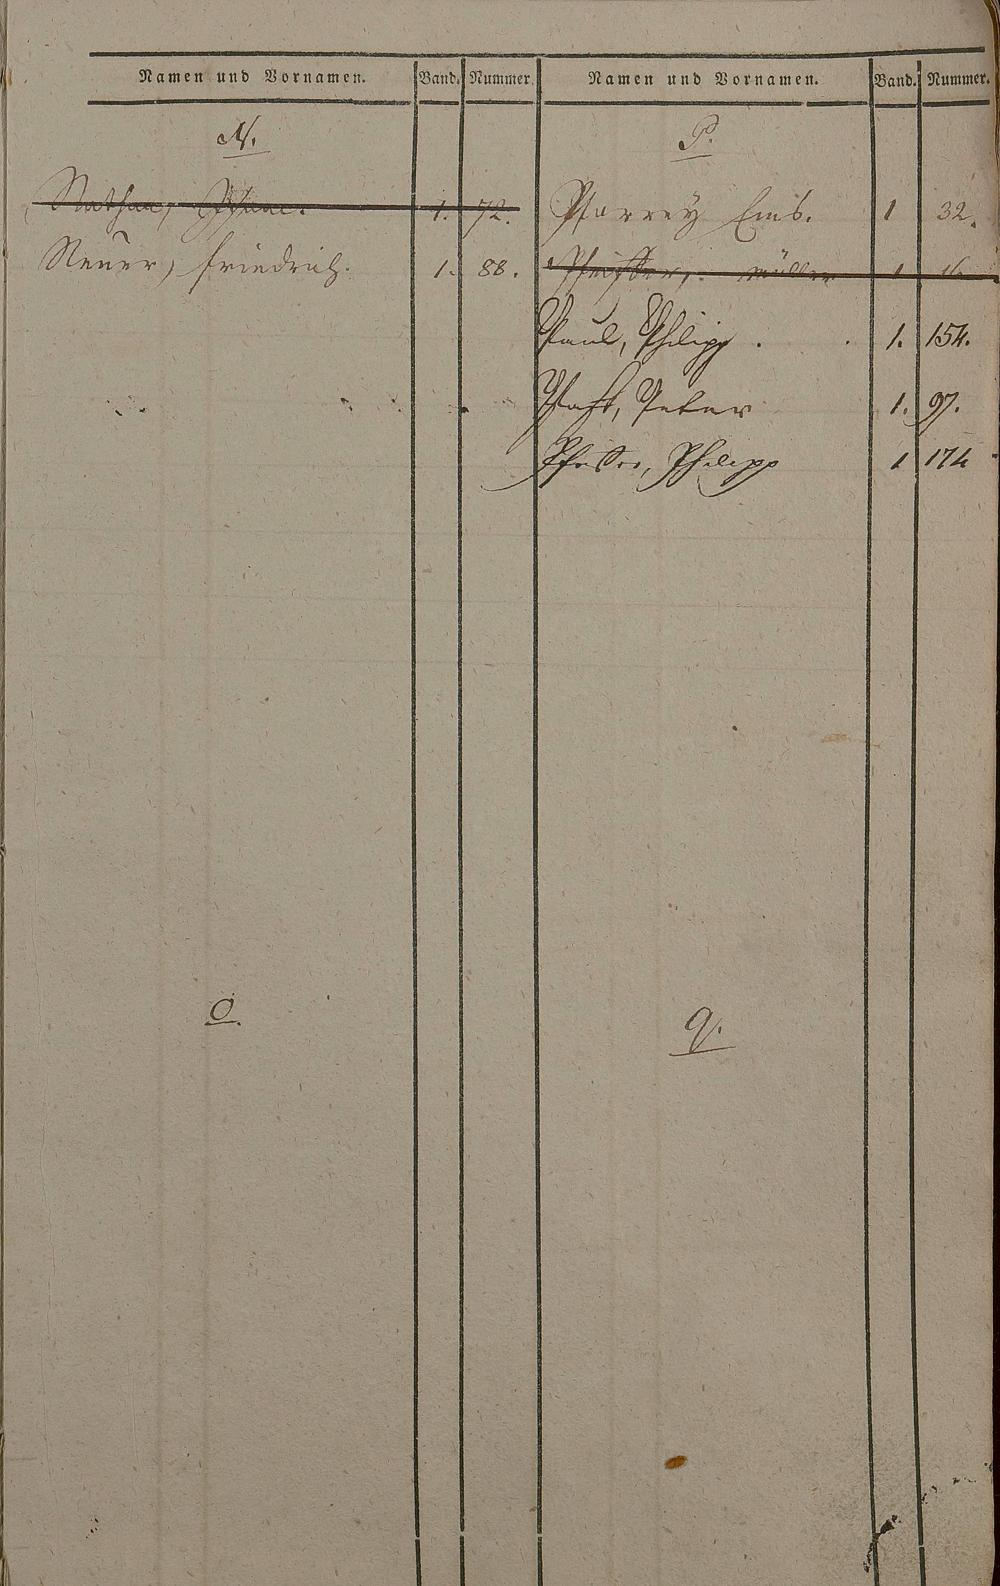 Namen und Vornamen. Band. Nummer.
N.
Nathan, 1. 72.
Neuer, Friedrich. 1. 88.
O.
Namen und Vornamen. Band. Nummer.
P.
Pfarrey Ems. 1 32.
Pfeiffer, Müller 1 16.
Paul, Philipp . . 1. 154.
Peter 1. 97.
Philipp 1 174
Q.